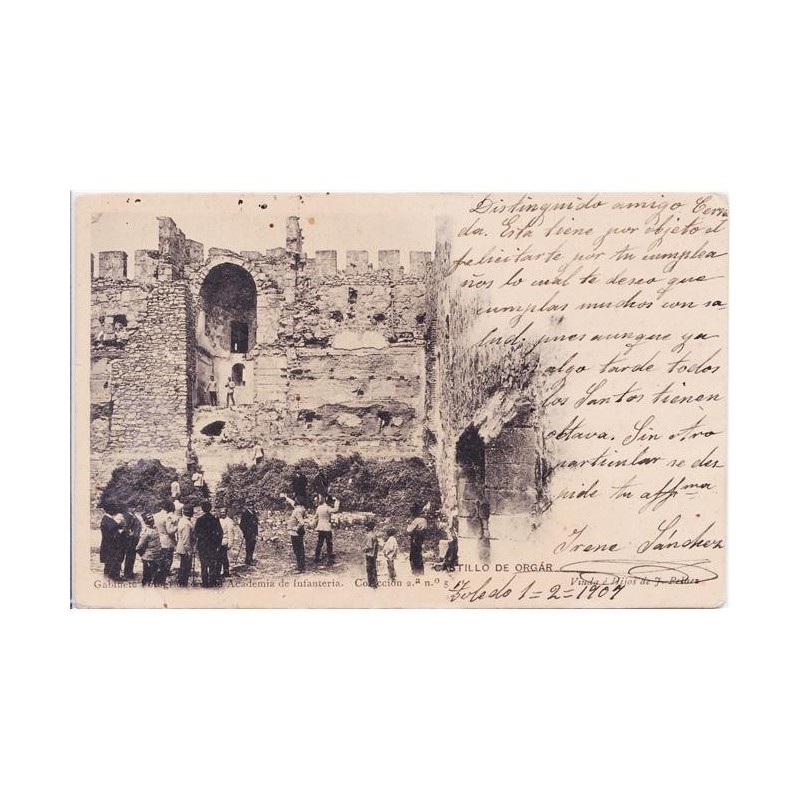 Distinguido amigo Cerve
da. Esta tiene por objeto el
felicitarte por tu cumplea
ños lo cual te deseo que
cumplas muchos con sa-
lud, pues aunque ya
algo tarde todos
los Santos tienen
octava. Sin otro
particular se des
pide tu affma
Irene Sánchez
CASTILLO DE ORGÁR
Gabinete Academia de Infantería. Colección 2.ª n.º 5
Viuda é Hijos de J. Peláez
Toledo 1=2=1907